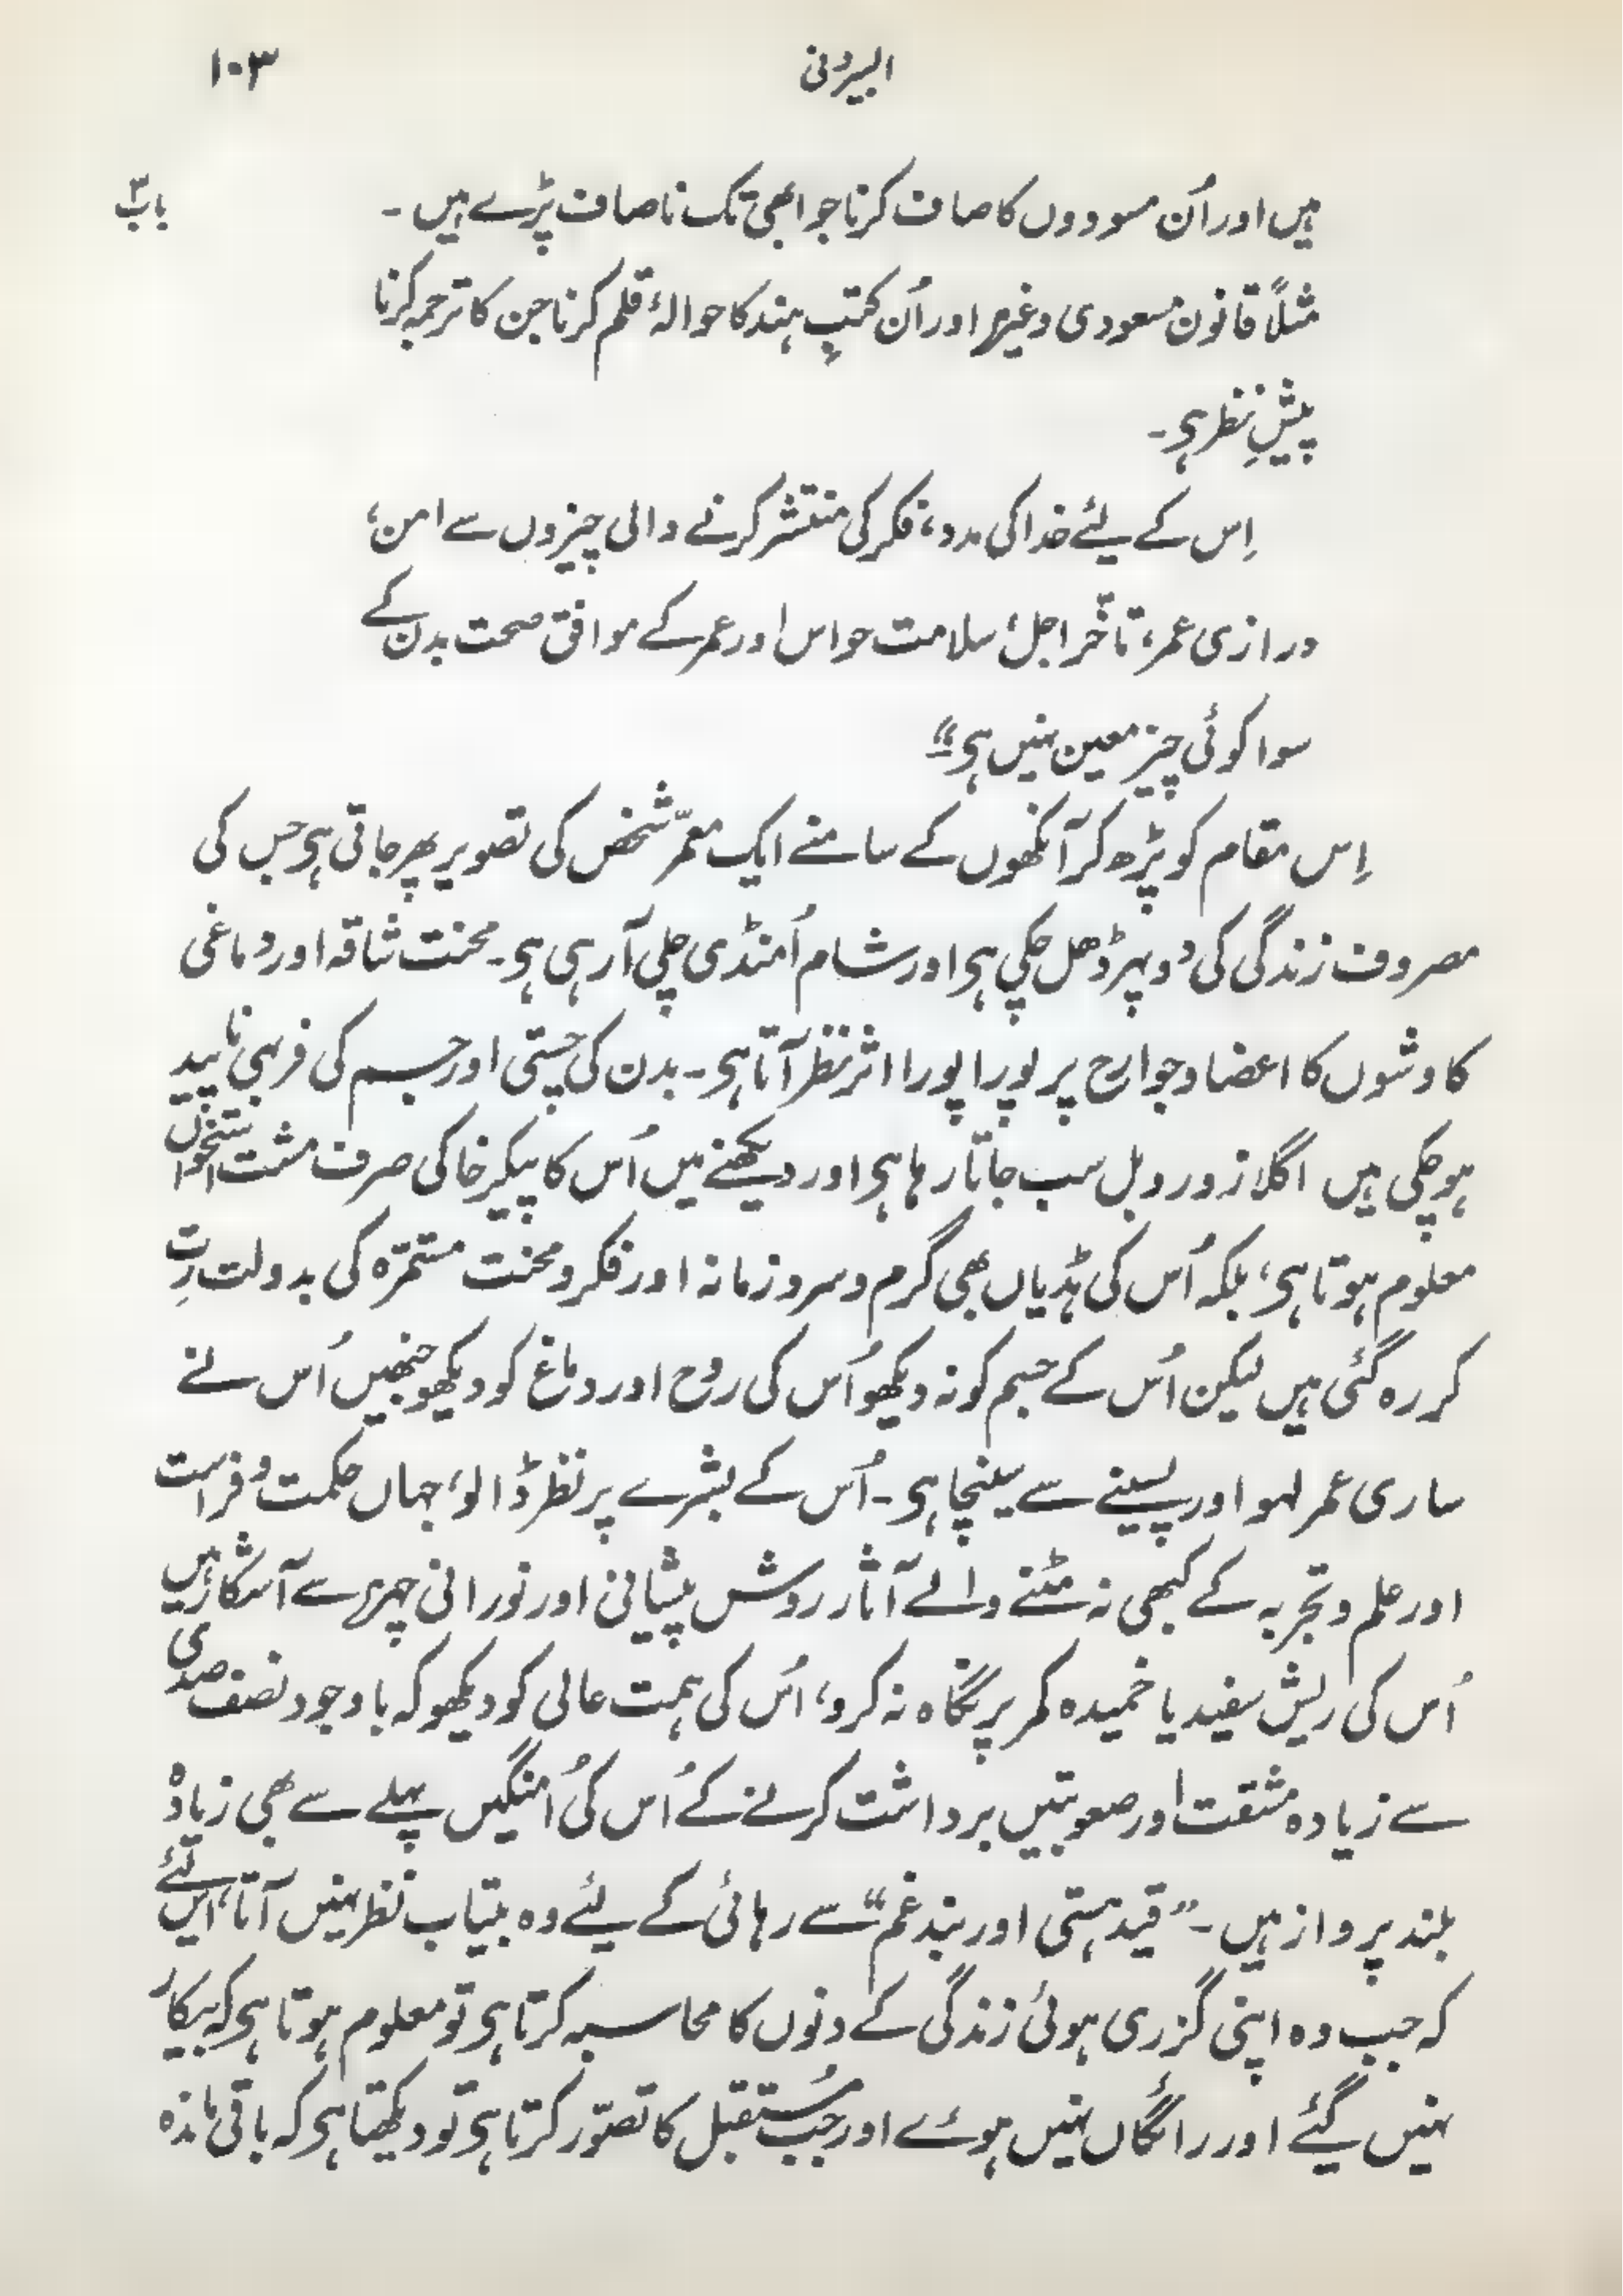 البیرونی ۱۰۳
باب۳
ہیں اور اُن مسودوں کا صاف کرنا جو ابھی تک ناصاف پڑے ہیں ۔
مثلاً قانون مسعودی وغیرہ اور اُن کتبِ ہند کا حوالۂ قلم کرنا جن کا ترجمہ کرنا
پیشِ نظر ہی ۔
اِس کے لیئے خدا کی مدد، فکر کی منتشر کرنے والی چیزوں سے امن،
درازی عمر، تاخّر اجل، سلامت حواس اور عمر کے موافق صحت بدن کے
سوا کوئی چیز معین نہیں ہی“
اِس مقام کو پڑھ کر آنکھوں کے سامنے ایک معمّر شخص کی تصویر پھر جاتی ہی جس کی
مصروف زندگی کی دوپہر ڈھل چکی ہی اور شام اُمنڈی چلی آرہی ہی ۔ محنت شاقہ اور دماغی
کاوشوں کا اعضا و جوارح پر پورا پورا اثر نظر آتا ہی ۔ بدن کی چستی اور جسم کی فربہی ناپید
ہو چکی ہیں اگلا زور و بل سب جاتا رہا ہی اور دیکھنے میں اُس کا پیکر خاکی صرف مشت استخواں
معلوم ہوتا ہی، بلکہ اُس کی ہڈیاں بھی گرم و سرد زمانہ اور فکر و محنت مستمرّہ کی بدولت رِت
کر رہ گئی ہیں لیکن اُس کے جسم کو نہ دیکھو اُس کی روح اور دماغ کو دیکھو جنھیں اُس نے
ساری عمر لہو اور پسینے سے سینچا ہی ۔ اُس کے بشرے پر نظر ڈالو، جہاں حکمت و فراست
اور علم و تجربہ کے کبھی نہ مٹنے والے آثار روشن پیشانی اور نورانی چہرہ سے آشکار ہیں
اُس کی ریش سفید یا خمیدہ کمر پر نگاہ نہ کرو، اُس کی ہمت عالی کو دیکھو کہ باوجود نصف صدی
سے زیادہ مشقت اور صعوبتیں برداشت کرنے کے اُس کی اُمنگیں پہلے سے بھی زیادہ
بلند پرواز ہیں ۔ ”قید ہستی اور بند غم“ سے رہائی کے لیئے وہ بیتاب نظر نہیں آتا، اس لئے
کہ جب وہ اپنی گزری ہوئی زندگی کے دنوں کا محاسبہ کرتا ہی تو معلوم ہوتا ہی کہ بیکار
نہیں گیئے اور رائگاں نہیں ہوئے اور جب مُستقبل کا تصوّر کرتا ہی تو دیکھتا ہی کہ باقی ماندہ